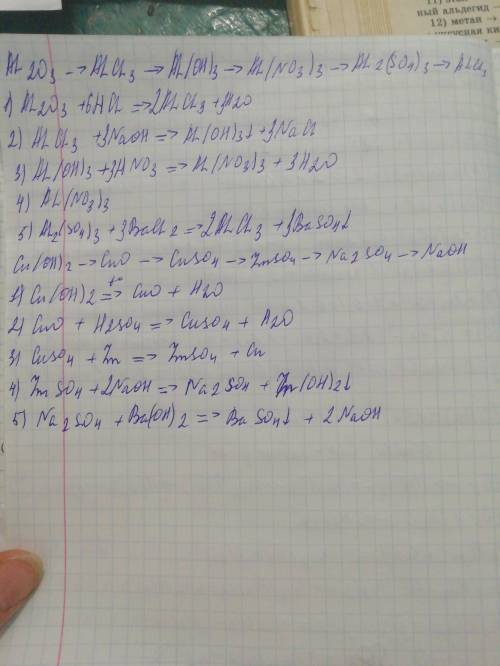 11) этан
ный альдегид
12) метан →
уксусная ки
Al2O3 → AlCl3 → Al(OH)3 → Al(NO3)3 → Al2(SO4)3 → AlCl3
1) Al2O3 + 6HCl => 2AlCl3 + 3H2O
2) AlCl3 + 3NaOH => Al(OH)3↓ + 3NaCl
3) Al(OH)3 + 3HNO3 => Al(NO3)3 + 3H2O
4) Al(NO3)3
5) Al2(SO4)3 + 3BaCl2 => 2AlCl3 + 3BaSO4↓
Cu(OH)2 → CuO → CuSO4 → ZnSO4 → Na2SO4 → NaOH
1) Cu(OH)2 => CuO + H2O
2) CuO + H2SO4 => CuSO4 + H2O
3) CuSO4 + Zn => ZnSO4 + Cu
4) ZnSO4 + 2NaOH => Na2SO4 + Zn(OH)2↓
5) Na2SO4 + Ba(OH)2 => BaSO4↓ + 2NaOH